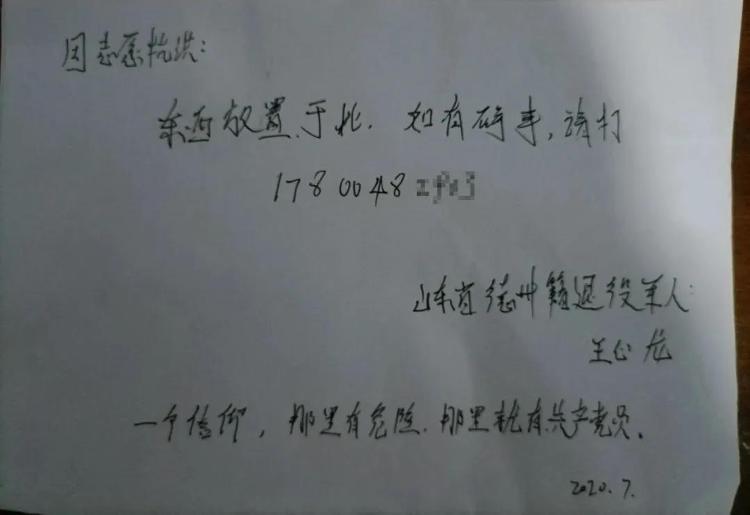 因志愿抗洪:
东西放置于此. 如有碍事,请打
1780048
山东省德州籍退役军人:
王公龙
一个信仰,那里有危险.那里就有共产党员.
2020.7.